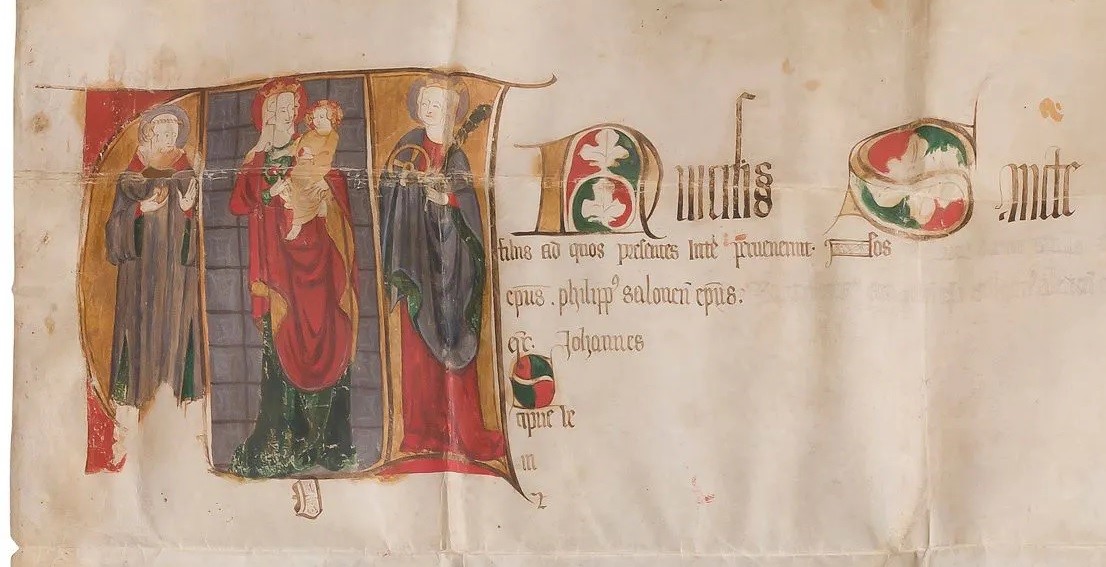 UNiuersis Sancte
filiis ad quos presentes litt̄e peruenerint. sos
ep̄us . philippꝰ salonen̄ ep̄us:
Johannes
S
le
in